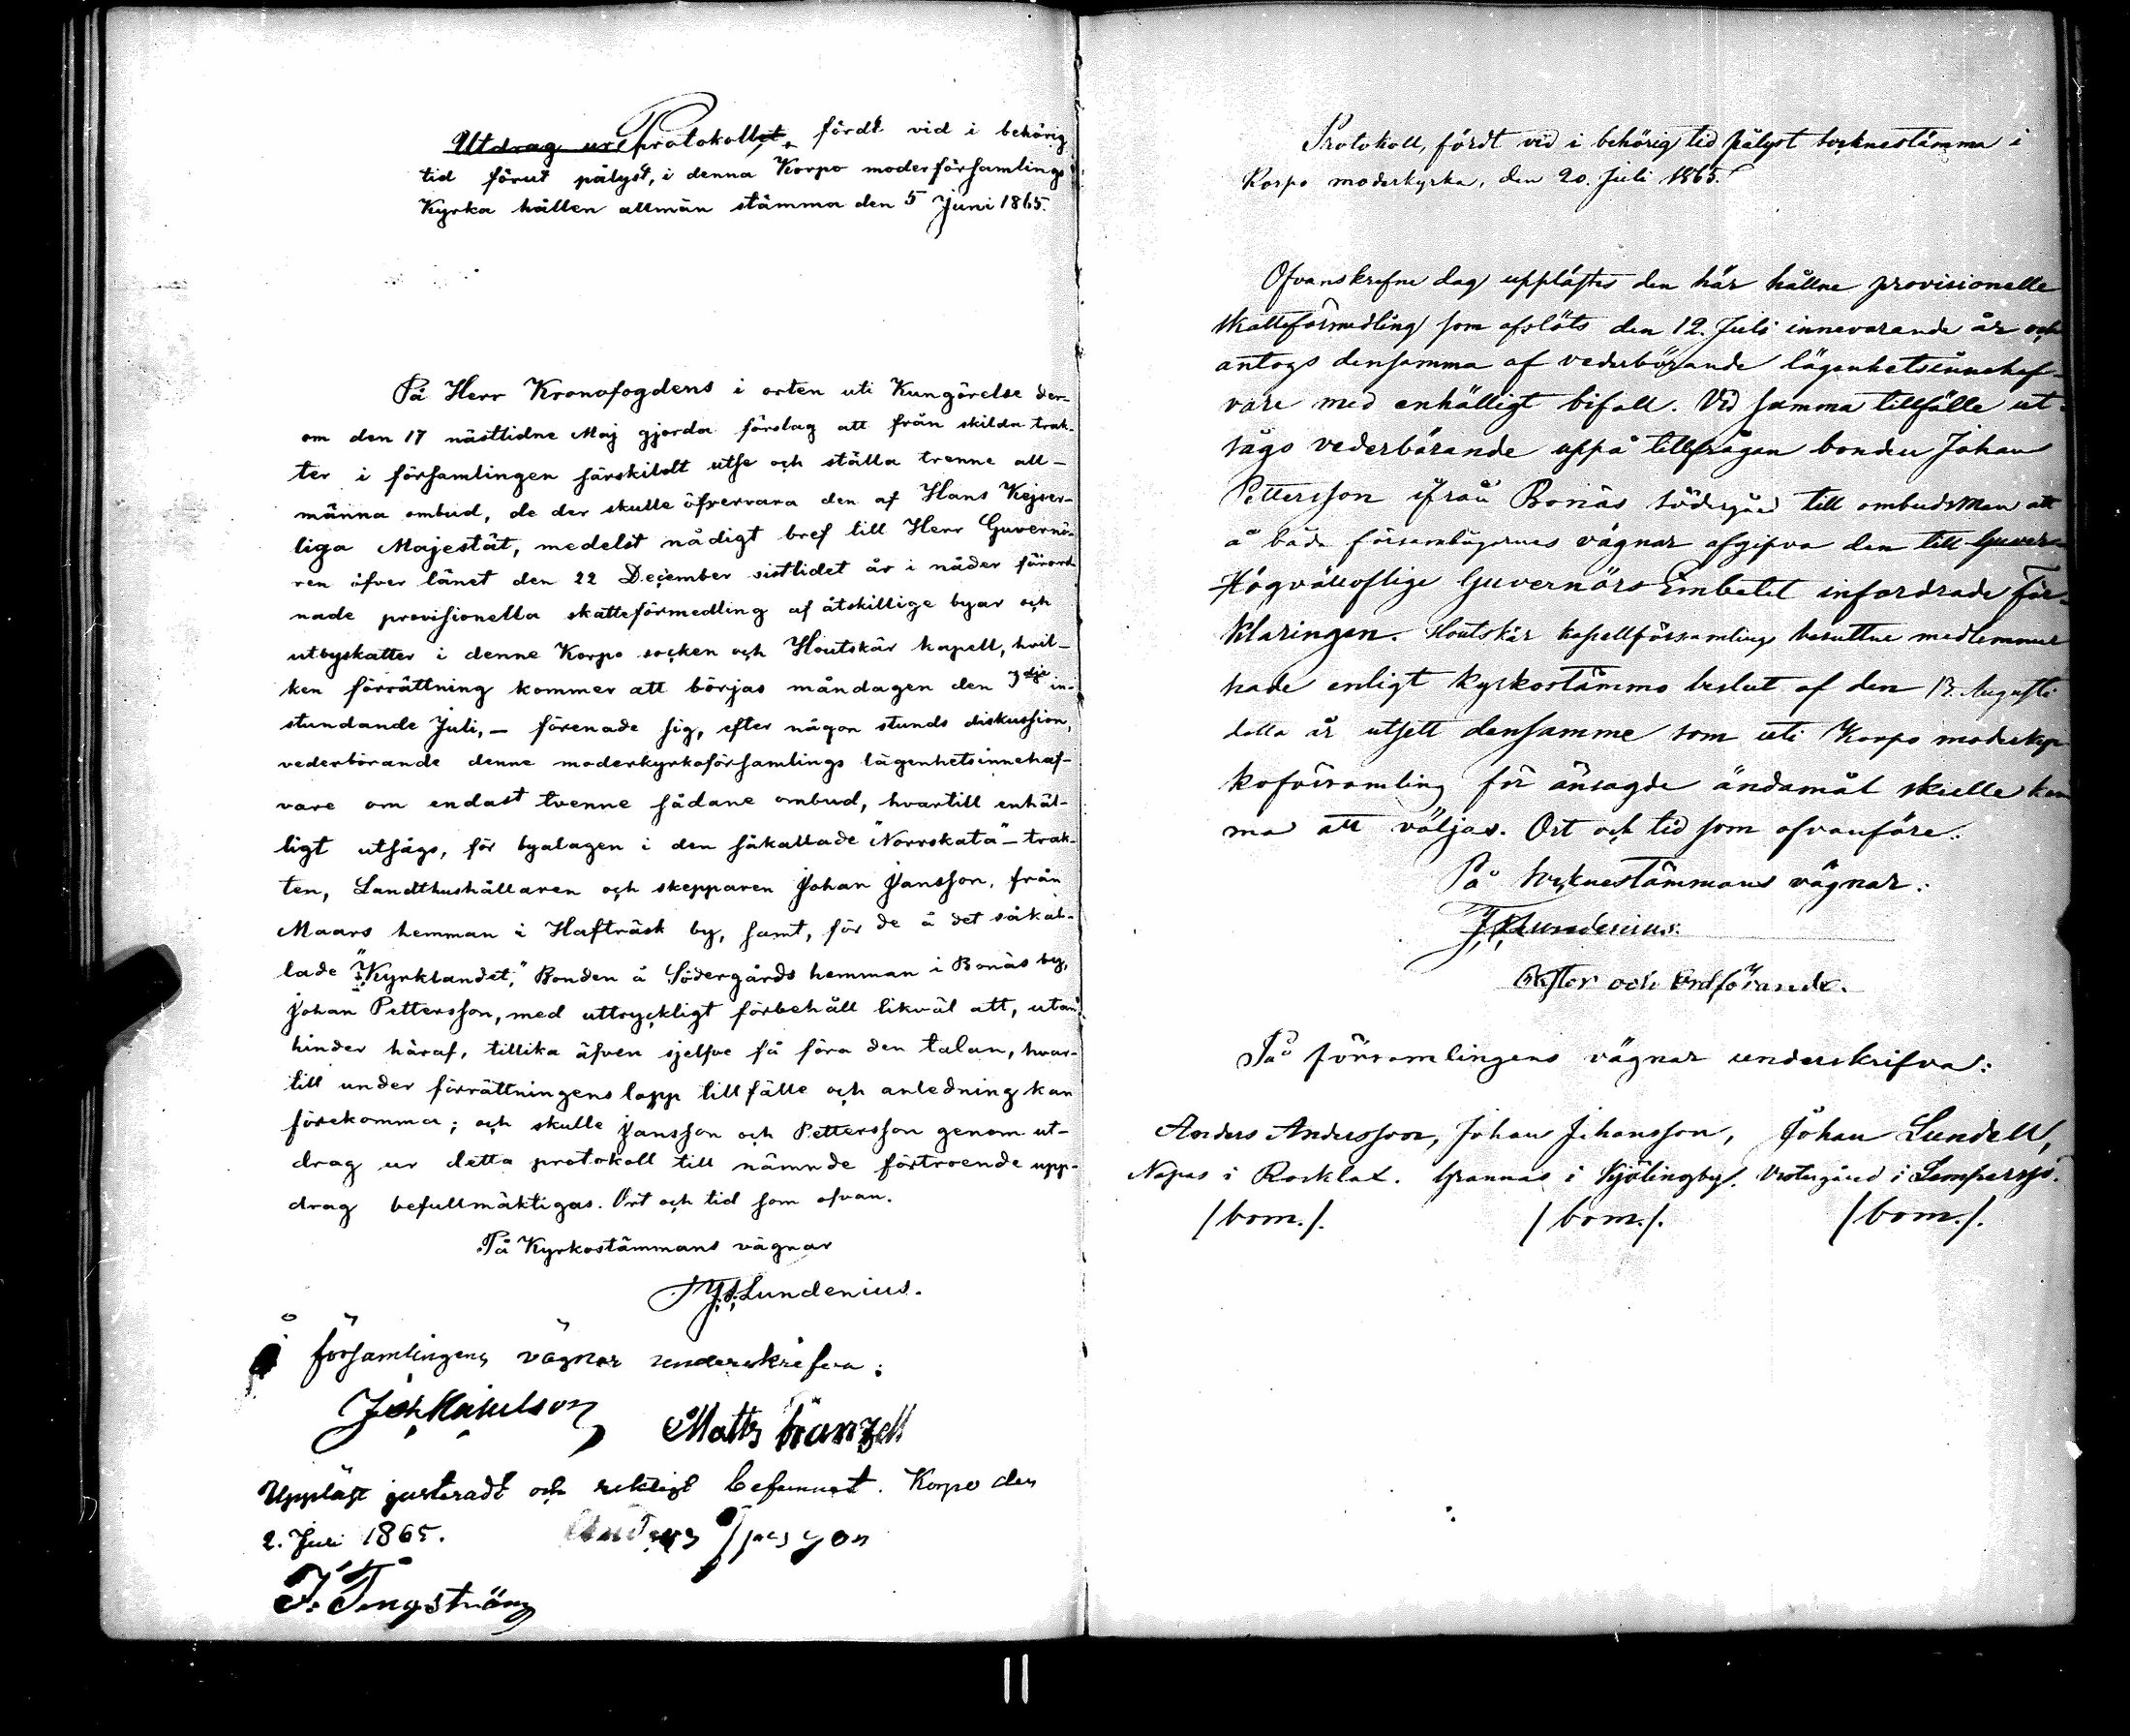 Utdrag ur Protokollet, fördt vid i behörig
tid förut pålyst, i denna Korpo moderförsamlings
Kyrka hållen allmän stämma den 5 Juni 1865.
På Herr Kronofogdens i orten uti Kungörelse der-
om den 17 nästlidne Maj gjorda förslag att från skilda trak-
ter i församlingen särskildt utse och ställa trenne all-
männa ombud, de der skulle öfvervara den af Hans Kejser-
liga Majestät, medelst nådigt bref till Herr Guvernö-
ren öfver länet den 22 December sistlidet år i nåder förord-
nade provisionella skatteförmedling af åtskillige byar och
utbyskatter i denne Korpo socken och Houtskär kapell, hvil-
ken förrättning kommer att börjas måndagen den 3dje in-
stundande Juli, – förenade sig, efter någon stunds diskussion,
vederbörande denne moderkyrkoförsamlings lägenhetsinnehaf-
vare om endast tvenne sådane ombud, hvartill enhäl-
ligt utsågs, för byalagen i den såkallade "Norrskata"- trak-
ten, Landthushållaren och skepparen Johan Jansson, från
Maars hemman i Hafträsk by, samt, för de å det såkal-
lade "Kyrklandet," Bonden å Södergårds hemman i Bonäs by,
Johan Pettersson, med uttryckligt förbehåll likväl att, utan
hinder häraf, tillika äfven sjelfve få föra den talan, hvar-
till under förrättningens lopp tillfälle och anledning kan
förekomma; och skulle Jansson och Pettersson genom ut-
drag ur detta protokoll till nämnde förtroende upp-
drag befullmäktigas. Ort och tid som ofvan.
På Kyrkostämmans vägnar
Lundenius.
Å församlingens vägnar underskrifva:
Matts
Uppläst justeradt och riktigt befunnet. Korpo den
2. Juli 1865. Anders
J. Tengström
Protokoll, fördt vid i behörig tid pålyst socknestämma i
Korpo moderkyrka, den 20. Juli 1865.
Ofvanskrefne dag upplästes den här hållne provisionelle
skatteförmedling som afslöts den 12. Juli innevarande år och
antogs densamma af vederbörande lägenhetsinnehaf-
vare med enhälligt bifall. Vid samma tillfälle ut-
sågs vederbörande uppå tillfrågan bonden Johan
Pettersson ifrån Bonäs södergård till ombudsman att
å båda församlingarnes vägnar afgifva den till Guver-
Högvälloflige Guvernörs Embetet infordrade för-
klaringen. Houtskär kapellförsamlings besuttne medlemmar
hade enligt kyrkostämmo beslut af den 13. Augusti
detta år utsett densamme som uti Korpo moderkyr-
koförsamling för ändamål skulle kom
ma att väljas. Ort och tid som ofvanföre.
På socknestämmans vägnar:
Lundenius.
och Ordförande.
På församlingens vägnar underskrifva:
Anders Andersson, Johan Johansson, Johan Lundell,
Nopas i Rosklat. Grannas i Kjälingby. Vestergård i Lempersjö.
/bom./. /bom./. /bom./.